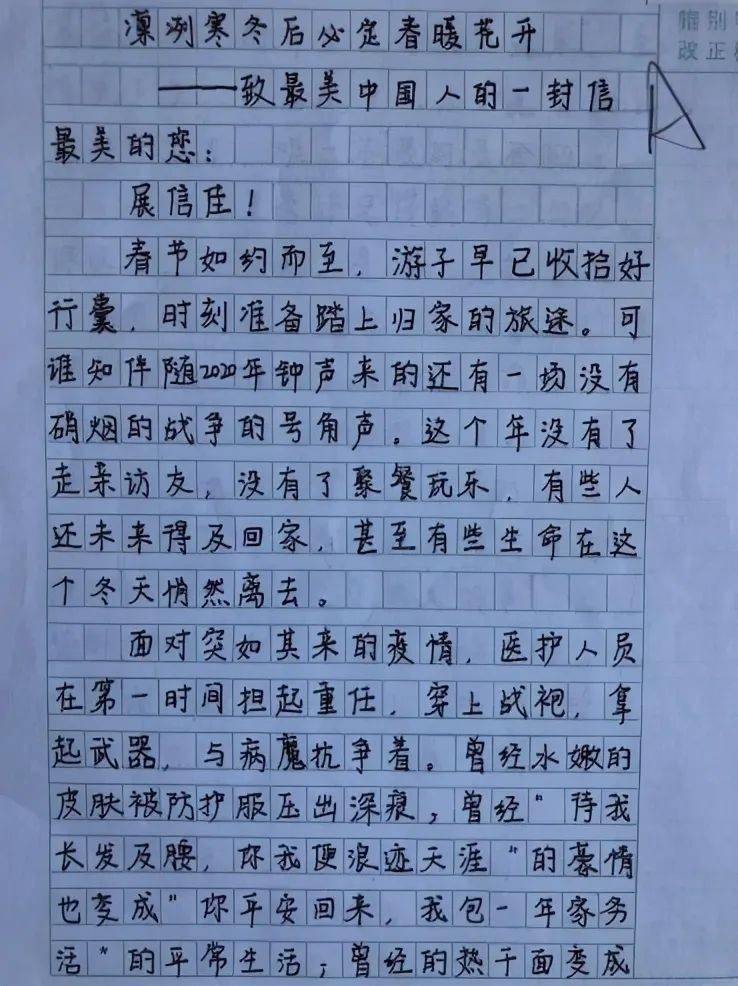 凛冽寒冬后必定春暖花开
——致最美中国人的一封信
最美的您：
展信佳！
春节如约而至，游子早已收拾好
行囊，时刻准备踏上归家的旅途。可
谁知伴随2020年钟声来的还有一场没有
硝烟的战争的号角声。这个年没有了
走亲访友，没有了聚餐玩乐，有些人
还未来得及回家，甚至有些生命在这
个冬天悄然离去。
面对突如其来的疫情，医护人员
在第一时间担起重任，穿上战袍，拿
起武器，与病魔抗争着。曾经水嫩的
皮肤被防护服压出深痕；曾经“待我
长发及腰，你我便浪迹天涯”的豪情
也变成“你平安回来，我包一年家务
活”的平常生活；曾经的热干面变成
A
改正